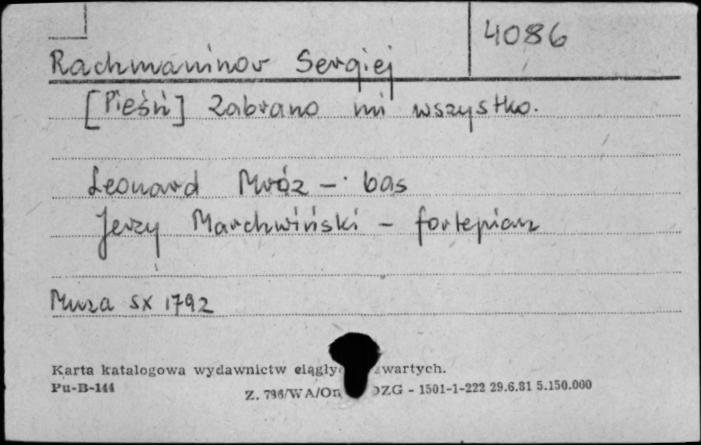 4086
Rachmaninov Sergiej
[Pieśń] Zabrano mi wszystko.
Leonard Mróz – bas
Jerzy Marchwiński – fortepian
Muza SX 1792
Karta katalogowa wydawnictw ciągły wartych.
Pu-B-144
Z. 796/WA/Om OZG - 1501-1-222 29.6.81 5.150.000